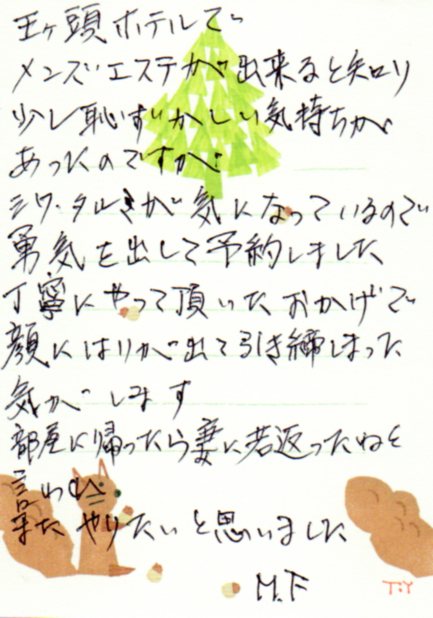 王ヶ頭ホテルで
メンズエステが出来ると知り
少し恥ずかしい気持ちが
あったのですが
シワ・タルミが気になっているので
勇気を出して予約しました
丁寧にやって頂いたおかげで
顔にはりが出て引き締まった
気がします
部屋に帰ったら妻に若返ったねと
言われ
またやりたいと思いました
M.F
T.Y